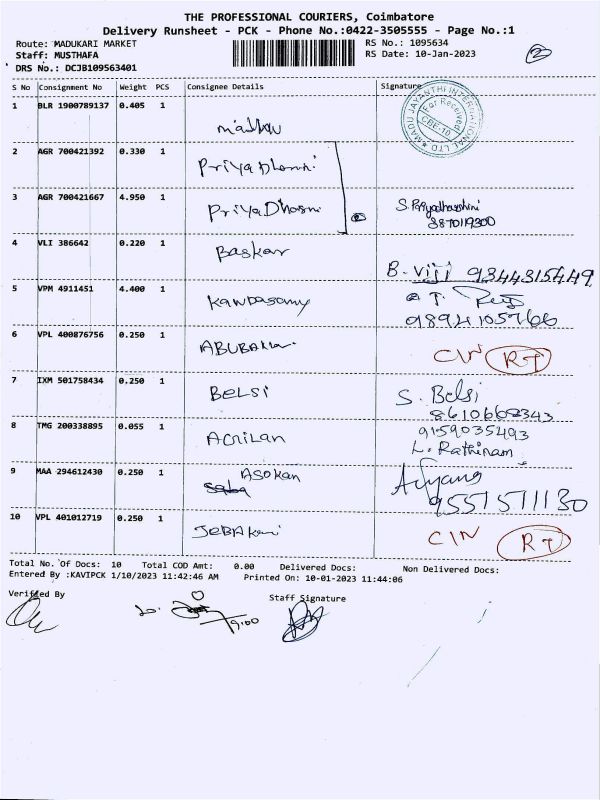 THE PROFESSIONAL COURIERS, Coimbatore
Delivery Runsheet - PCK - Phone No.:0422-3505555 - Page No.:1
Route: MADUKARI MARKET
RS No.: 1095634
Staff: MUSTHAFA
RS Date: 10-Jan-2023
2
DRS No.: DCJB109563401
S No Consignment No Weight PCS Consignee Details Signature
MADU JAYANTHI INTERNATIONAL LTD
For Received
CBE-10
1 BLR 1900789137 0.405 1
2 AGR 700421392 0.330 1 PriyaDharshni
3 AGR 700421667 4.950 1 PriyaDhosni 2 S. Priyadharshini
8870119300
4 VLI 386642 0.220 1 Baskar B. Viji 9344315449
5 VPM 4911451 4.400 1 Kandasamy
9894105766
6 VPL 400876756 0.250 1 ABUBAKar CIN RT
7 IXM 501758434 0.250 1 BELSI S. Belsi
8610668343
8 TMG 200338895 0.055 1 ACRILAN 9159035493
L. Rathinam
9 MAA 294612430 0.250 1 ASOKAN
9551511130
10 VPL 401012719 0.250 1 JEBAKani CIN RT
Total No. Of Docs: 10 Total COD Amt: 0.00 Delivered Docs: Non Delivered Docs:
Entered By :KAVIPCK 1/10/2023 11:42:46 AM Printed On: 10-01-2023 11:44:06
Verified By
Staff Signature
9:00